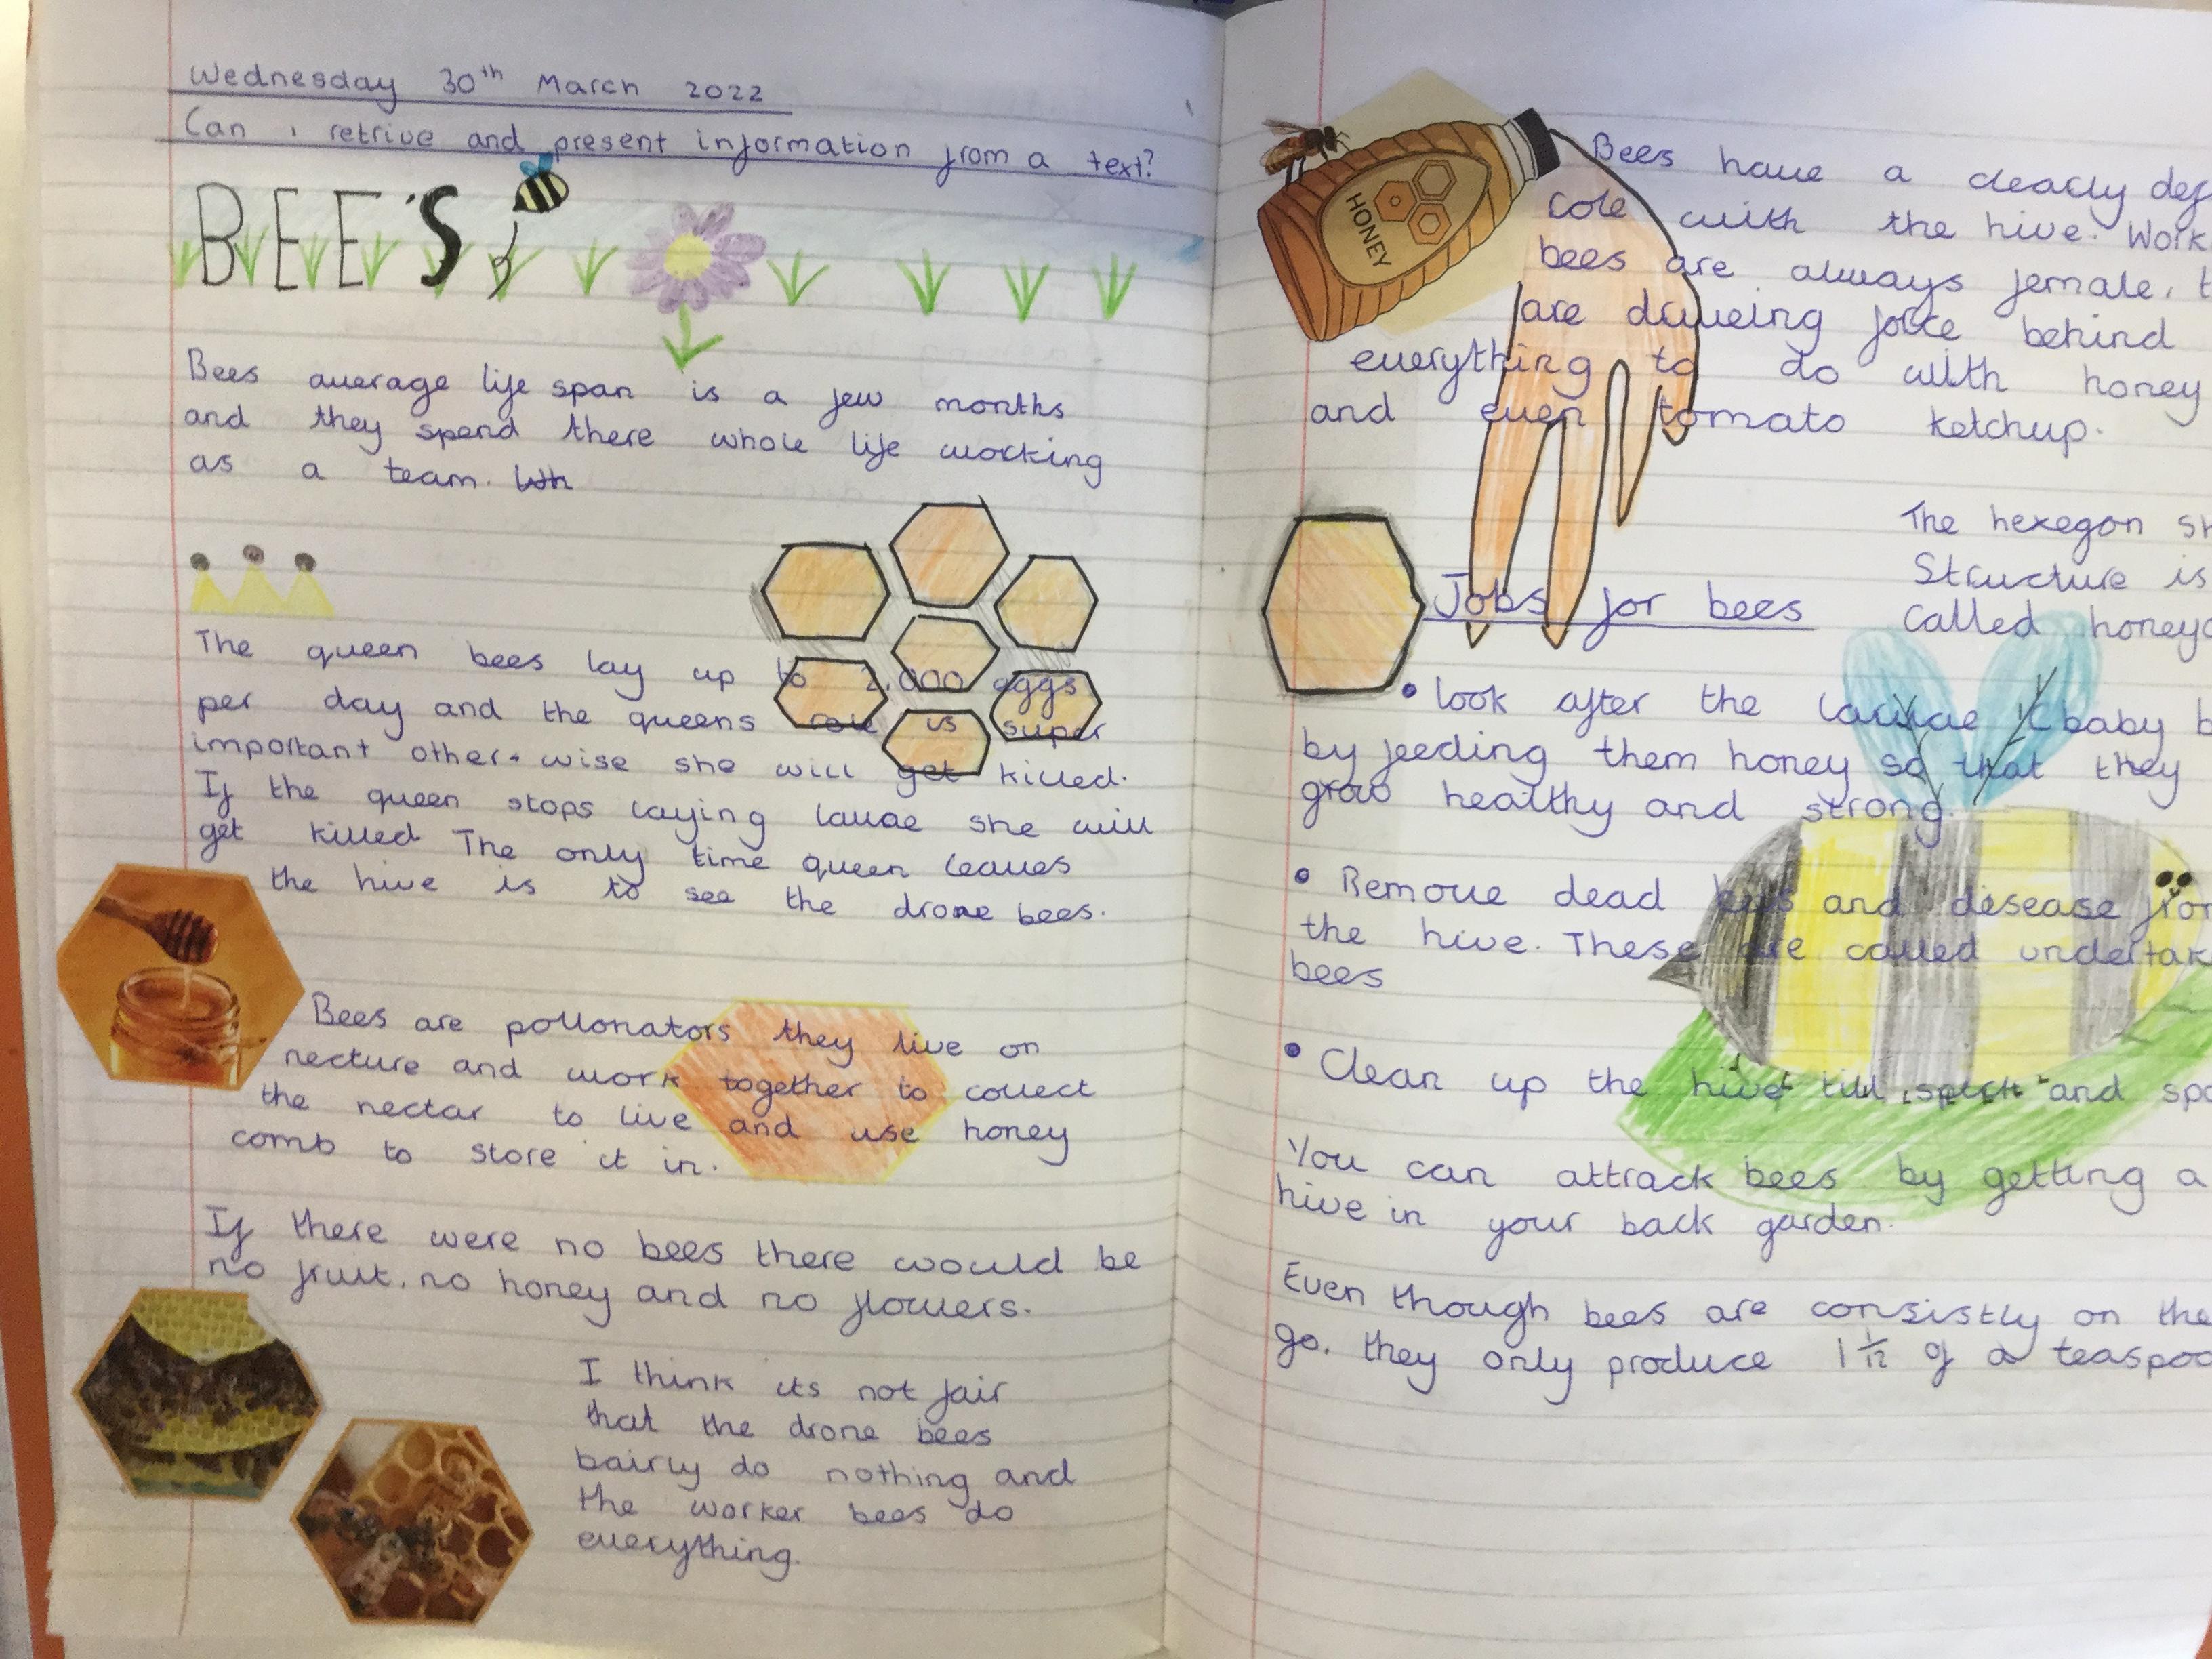 Wednesday 30th March 2022
Can i retrive and present information from a text?
BEE'S
Bees average life span is a few months
and they spend there whole life working
as a team.
The queen bees lay up to 2,000 eggs
per day and the queens role is super
important other-wise she will get killed.
If the queen stops laying lavae she will
get killed The only time queen leaves
the hive is to see the drone bees.
Bees are pollonators they live on
necture and work together to collect
the nectar to live and use honey
comb to store it in.
If there were no bees there would be
no fruit, no honey and no flowers.
I think its not fair
that the drone bees
bairly do nothing and
the worker bees do
everything.
HONEY
Bees have a clearly def
role with the hive. Work
bees are always female, t
are driveing force behind
everything to do with honey
and even tomato ketchup.
The hexegon sh
Structure is
called honeyc
Jobs for bees
• look after the larvae (baby b
by feeding them honey so that they
grow healthy and strong.
• Remove dead and desease from
the hive. These are called undertak
bees
• Clean up the hive till spick and spa
You can attrack bees by getting a
hive in your back garden.
Even though bees are consistly on the
go, they only produce 1 1/12 of a teaspoo